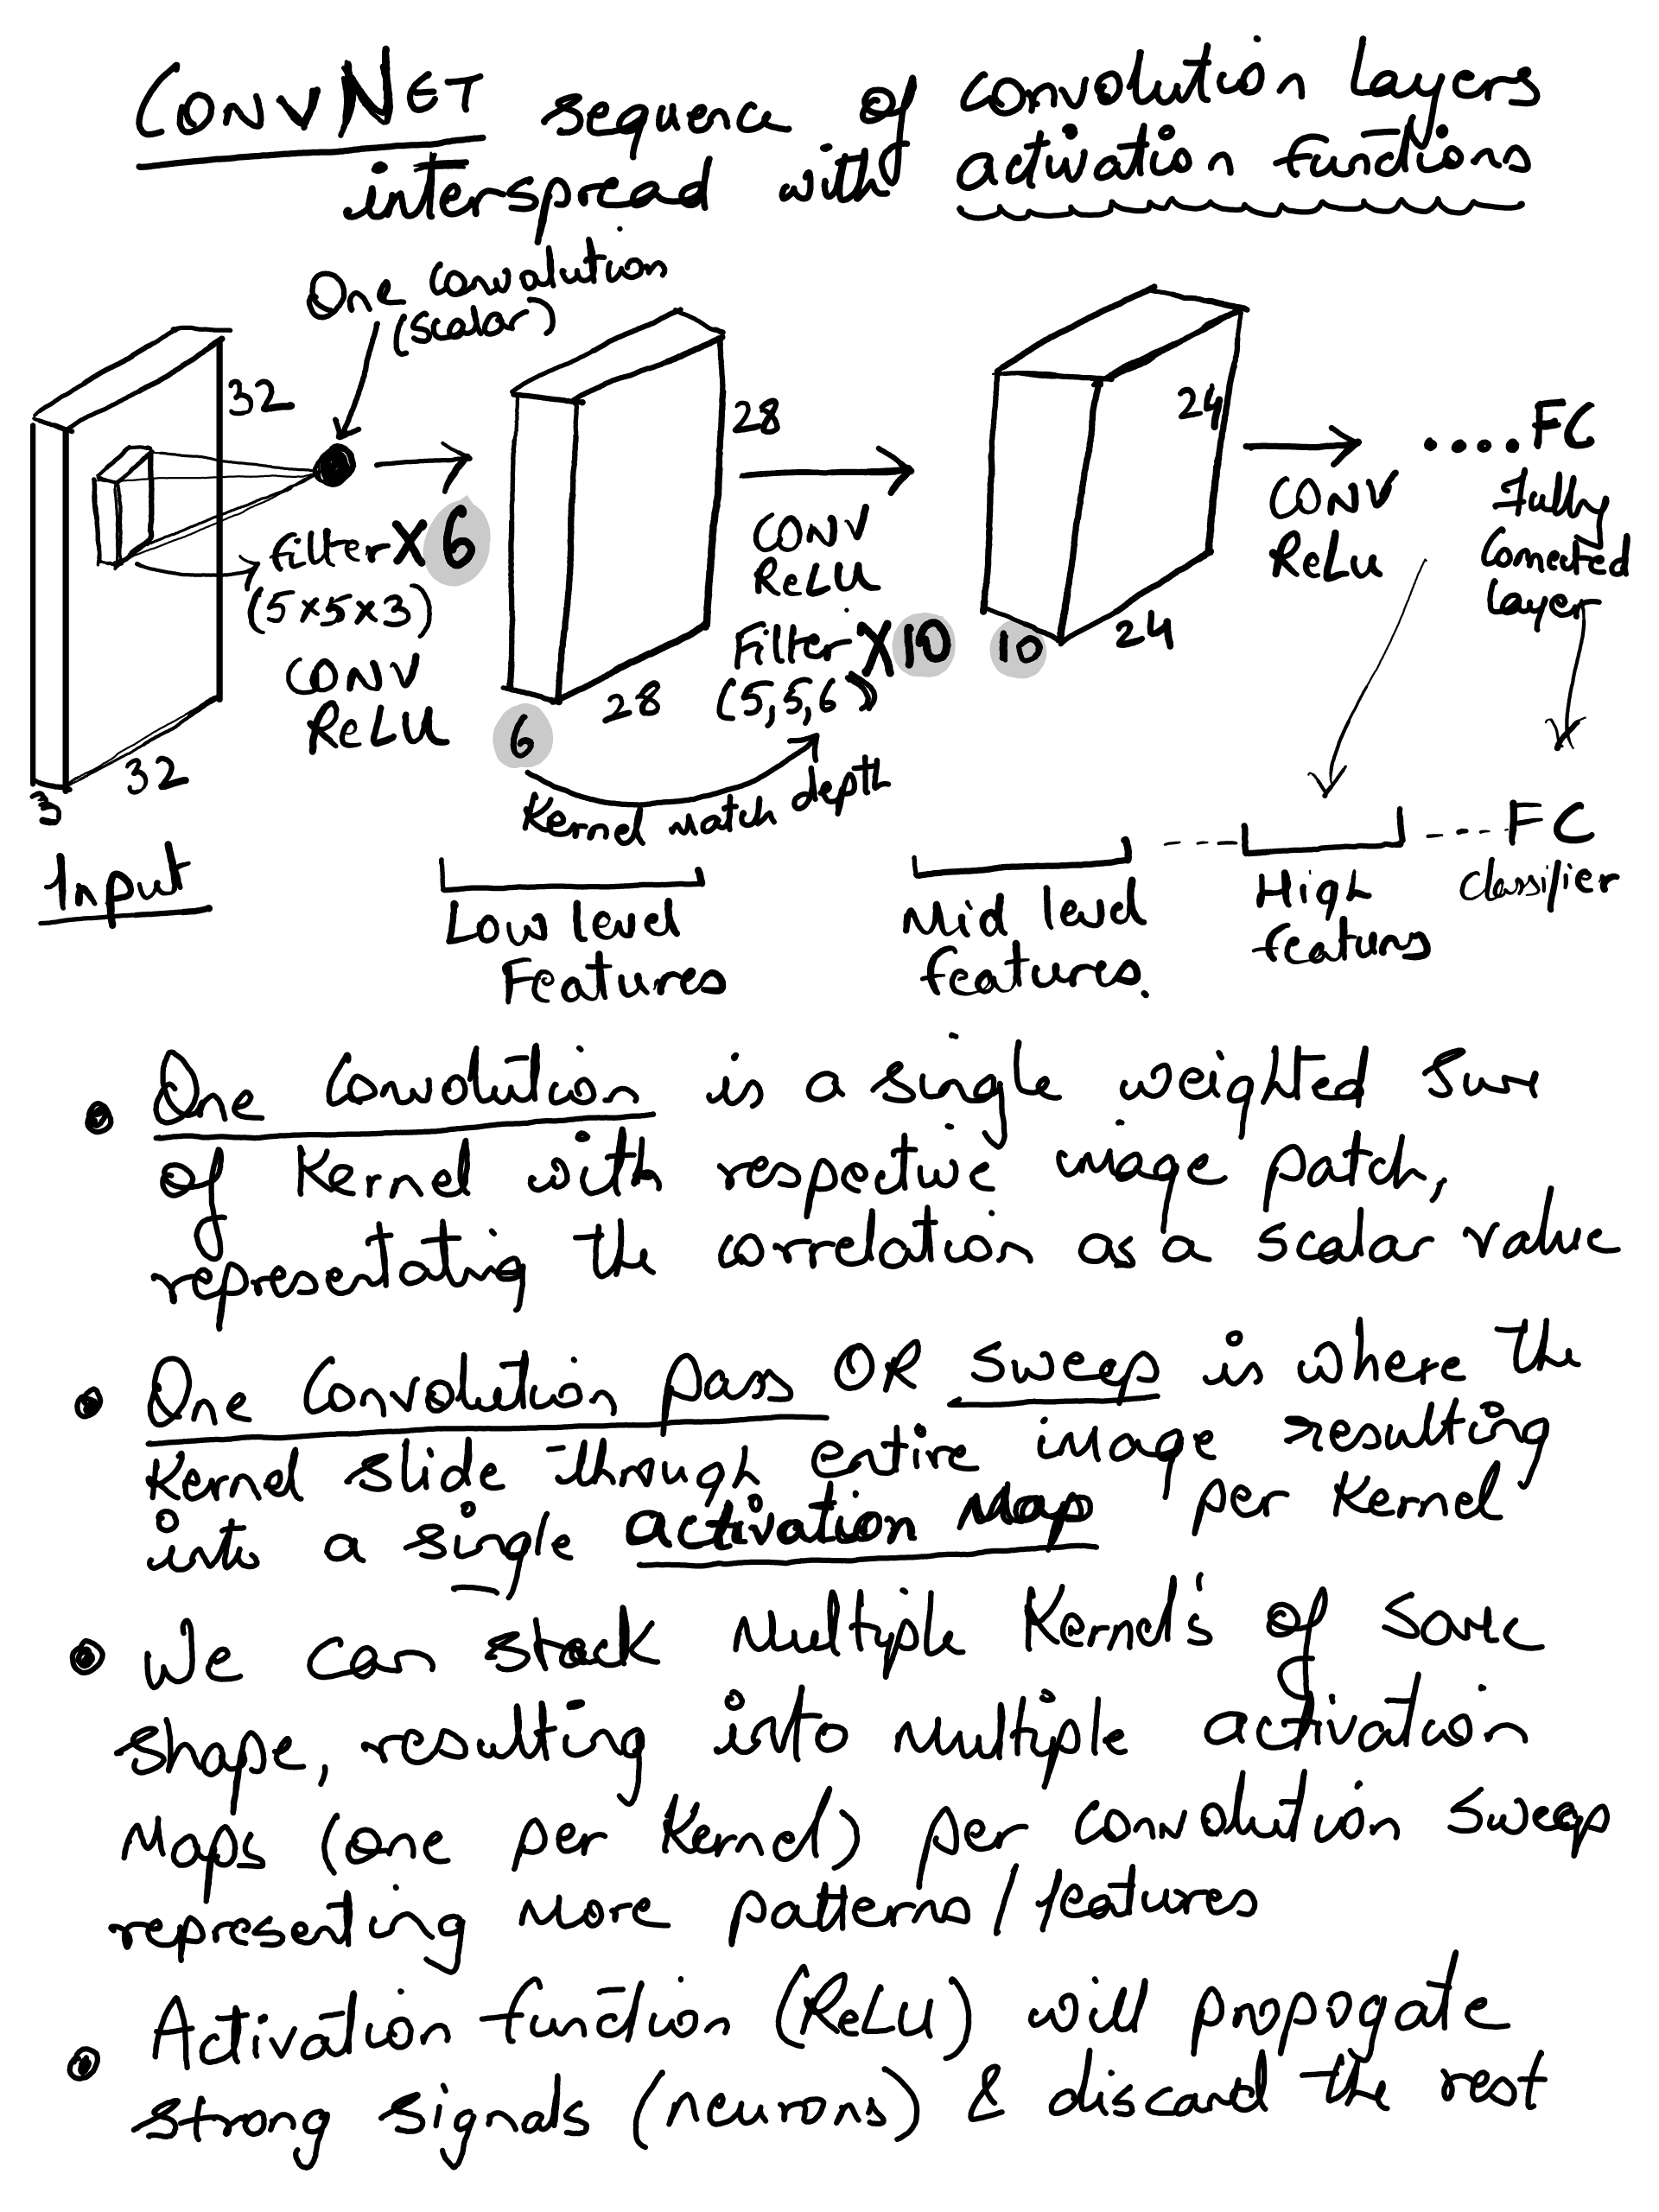 CONVNET sequence of convolution layers
interspread with activation functions
One convolution
(scalar)
32
28
24
....FC
Fully
Connected
layer
filter X 6
(5x5x3)
CONV
ReLU
CONV
ReLU
Filter X 10
(5,5,6)
CONV
ReLu
3
32
6
28
10
24
Kernel Match depth
Input
Low level
Features
Mid level
features.
High
features
----FC
classifier
• One convolution is a single weighted sum
of Kernel with respective image patch,
representating the correlation as a scalar value
• One Convolution pass OR sweep is where the
Kernel slide through entire image resulting
into a single activation Map per Kernel
• We can stack Multiple Kernel's of same
shape, resulting into Multiple activation
Maps (one per Kernel) per convolution sweep
representing More patterns/features
• Activation function (ReLU) will propogate
strong signals (neurons) & discard the rest